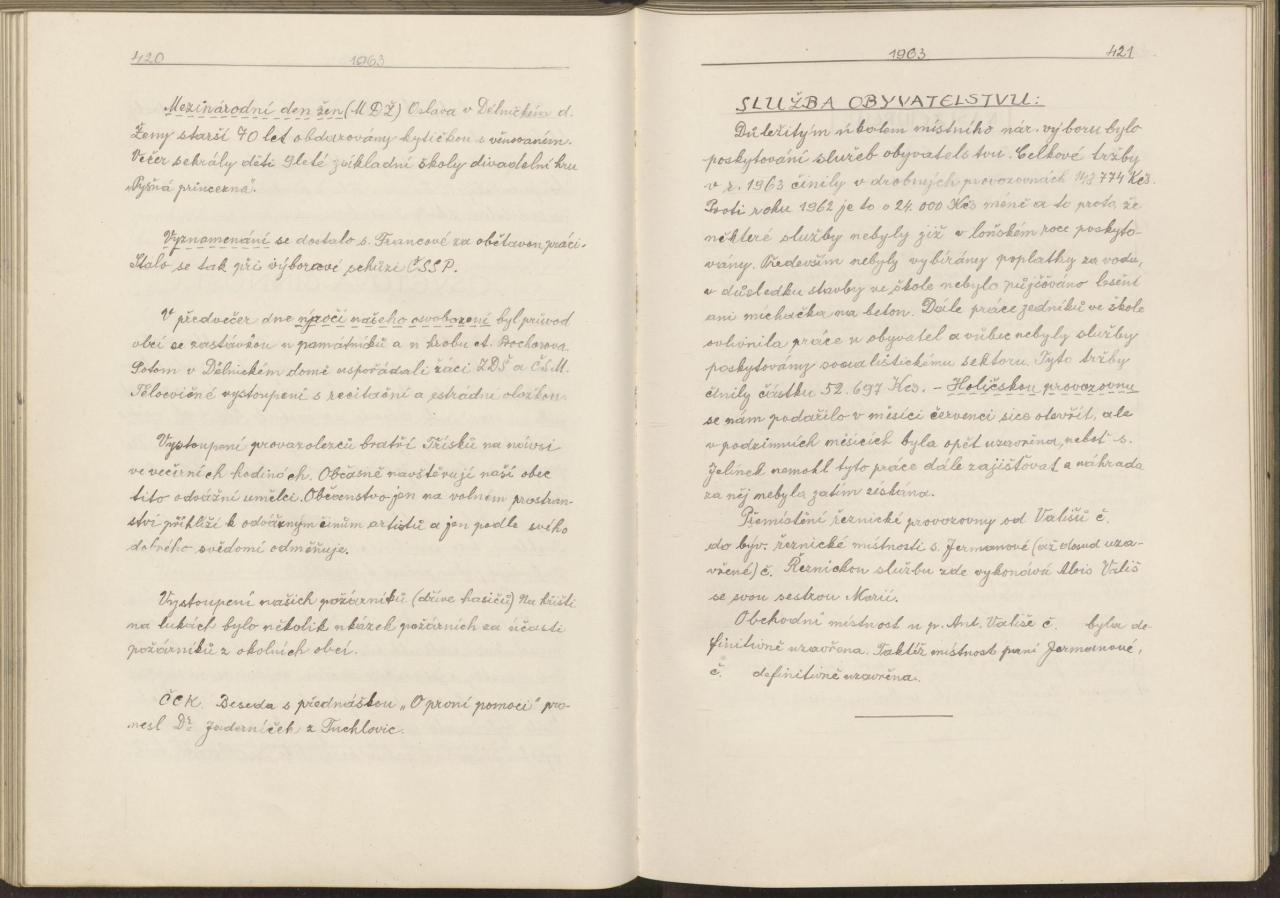 420 1963
Mezinárodní den žen (MDŽ) Oslava v Dělnickém d.
Ženy starší 70 let obdarovány kytičkou s věnovaném.
Večer sehrály děti 9leté základní školy divadelní hru
„Pyšná princezna".
Vyznamenání se dostalo s. Francové za obětavou práci.
Stalo se tak při výborové schůzi ČSSP.
V předvečer dne výročí našeho osvobození byl průvod
obcí se zastávkou u památníků a u hrobu et. Prochorova.
Potom v Dělnickém domě uspořádali žáci ZDŠ a ČSM.
Tělocvičné vystoupení s recitační a estrádní vložkou.
Vystoupení provazolezců bratří Třísků na návsi
ve večerních hodinách. Občasně navštěvují naší obec
tito odvážní umělci. Občenstvo jen na volném prostran-
ství přihlíží k odvážným činům artistů a jen podle svého
dobrého svědomí odměňuje.
Vystoupení našich požárníků (dříve hasičů) Na hřišti
na lukách bylo několik ukázek požárních za účasti
požárníků z okolních obcí.
ČČK. Beseda s přednáškou „O první pomoci" pro-
nesl Dr. Jaderníček z Tuchlovic.
1963 421
SLUŽBA OBYVATELSTVU:
Důležitým úkolem místního nár. výboru bylo
poskytování služeb obyvatelstvu. Celkové tržby
v r. 1963 činily v drobných provozovnách 143 774 Kčs.
Proti roku 1962 je to o 24.000 Kčs méně a to proto, že
některé služby nebyly již v loňském roce poskyto-
vány. Především nebyly vybírány poplatky za vodu,
v důsledku stavby ve škole nebylo půjčováno lešení
ani míchačka na beton. Dále práce zedníků ve škole
ovlivnila práce u obyvatel a vůbec nebyly služby
poskytovány socialistickému sektoru. Tyto tržby
činily částku 52.697 Kčs. – Holičskou provozovnu
se nám podařilo v měsíci červenci sice otevřít, ale
v podzimních měsících byla opět uzavřena, neboť s.
Jelínek nemohl tyto práce dále zajišťovat a náhrada
za něj nebyla zatím získána.
Přemístění řeznické provozovny od Vališů č.
do býv. řeznické místnosti s. Jermanové (až dosud uza-
vřené) č. Řeznickou službu zde vykonává Alois Vališ
se svou sestrou Marií.
Obchodní místnost u p. Ant. Vališe č. byla de-
finitivně uzavřena. Taktéž místnost paní Jermanové,
č. definitivně uzavřena.